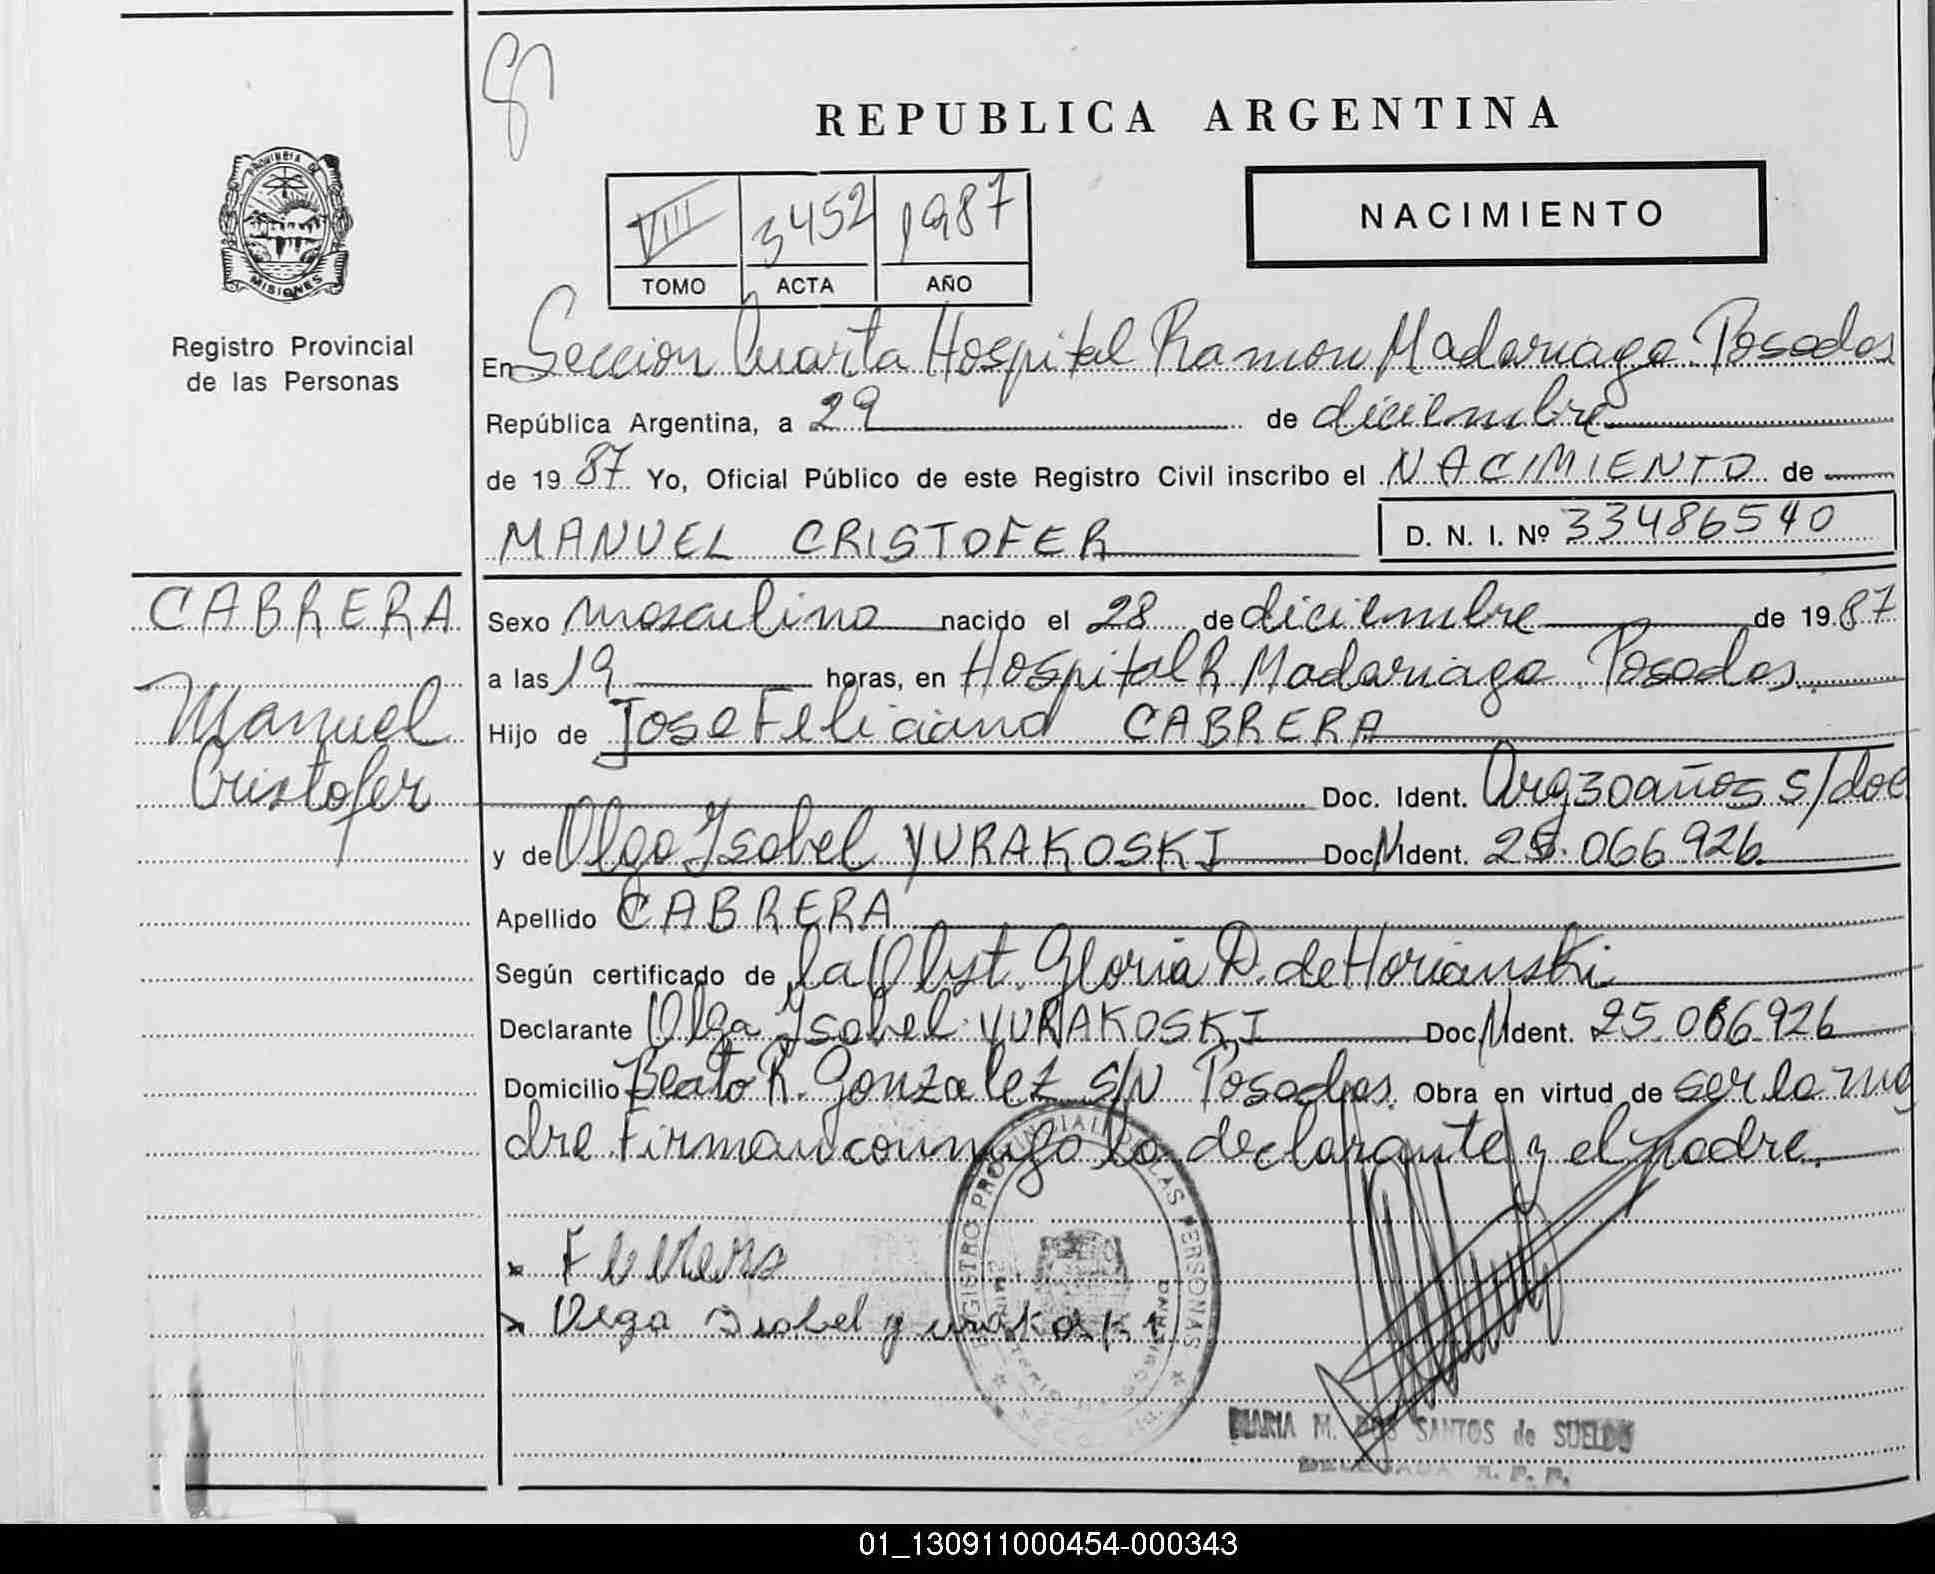 REPUBLICA ARGENTINA
VIII 3452 1987
TOMO ACTA AÑO
NACIMIENTO
PROVINCIA DE
MISIONES
Registro Provincial
de las Personas
En Seccion Cuarta Hospital Ramon Madariaga Posadas
República Argentina, a 29 de diciembre
de 1987 Yo, Oficial Público de este Registro Civil inscribo el NACIMIENTO de
MANUEL CRISTOFER D. N. I. Nº 33486540
CABRERA
Manuel
Cristofer
Sexo masculino nacido el 28 de diciembre de 1987
a las 19 horas, en Hospital R Madariaga Posadas.
Hijo de Jose Feliciano CABRERA
Doc. Ident. Arg 30 años s/doc
y de Olga Isabel YURAKOSKI Doc N Ident. 25.066.926
Apellido CABRERA
Según certificado de la Obst. Gloria D. de Horianski
Declarante Olga Isabel YURAKOSKI Doc N Ident. 25.066.926
Domicilio Beato R. Gonzalez S/N Posadas. Obra en virtud de ser la ma
dre Firman conmigo la declarante y el padre.
Olga Isabel yurakoski
REGISTRO PROVINCIAL DE LAS PERSONAS
MARIA M. DOS SANTOS de SUELDO
01_130911000454-000343